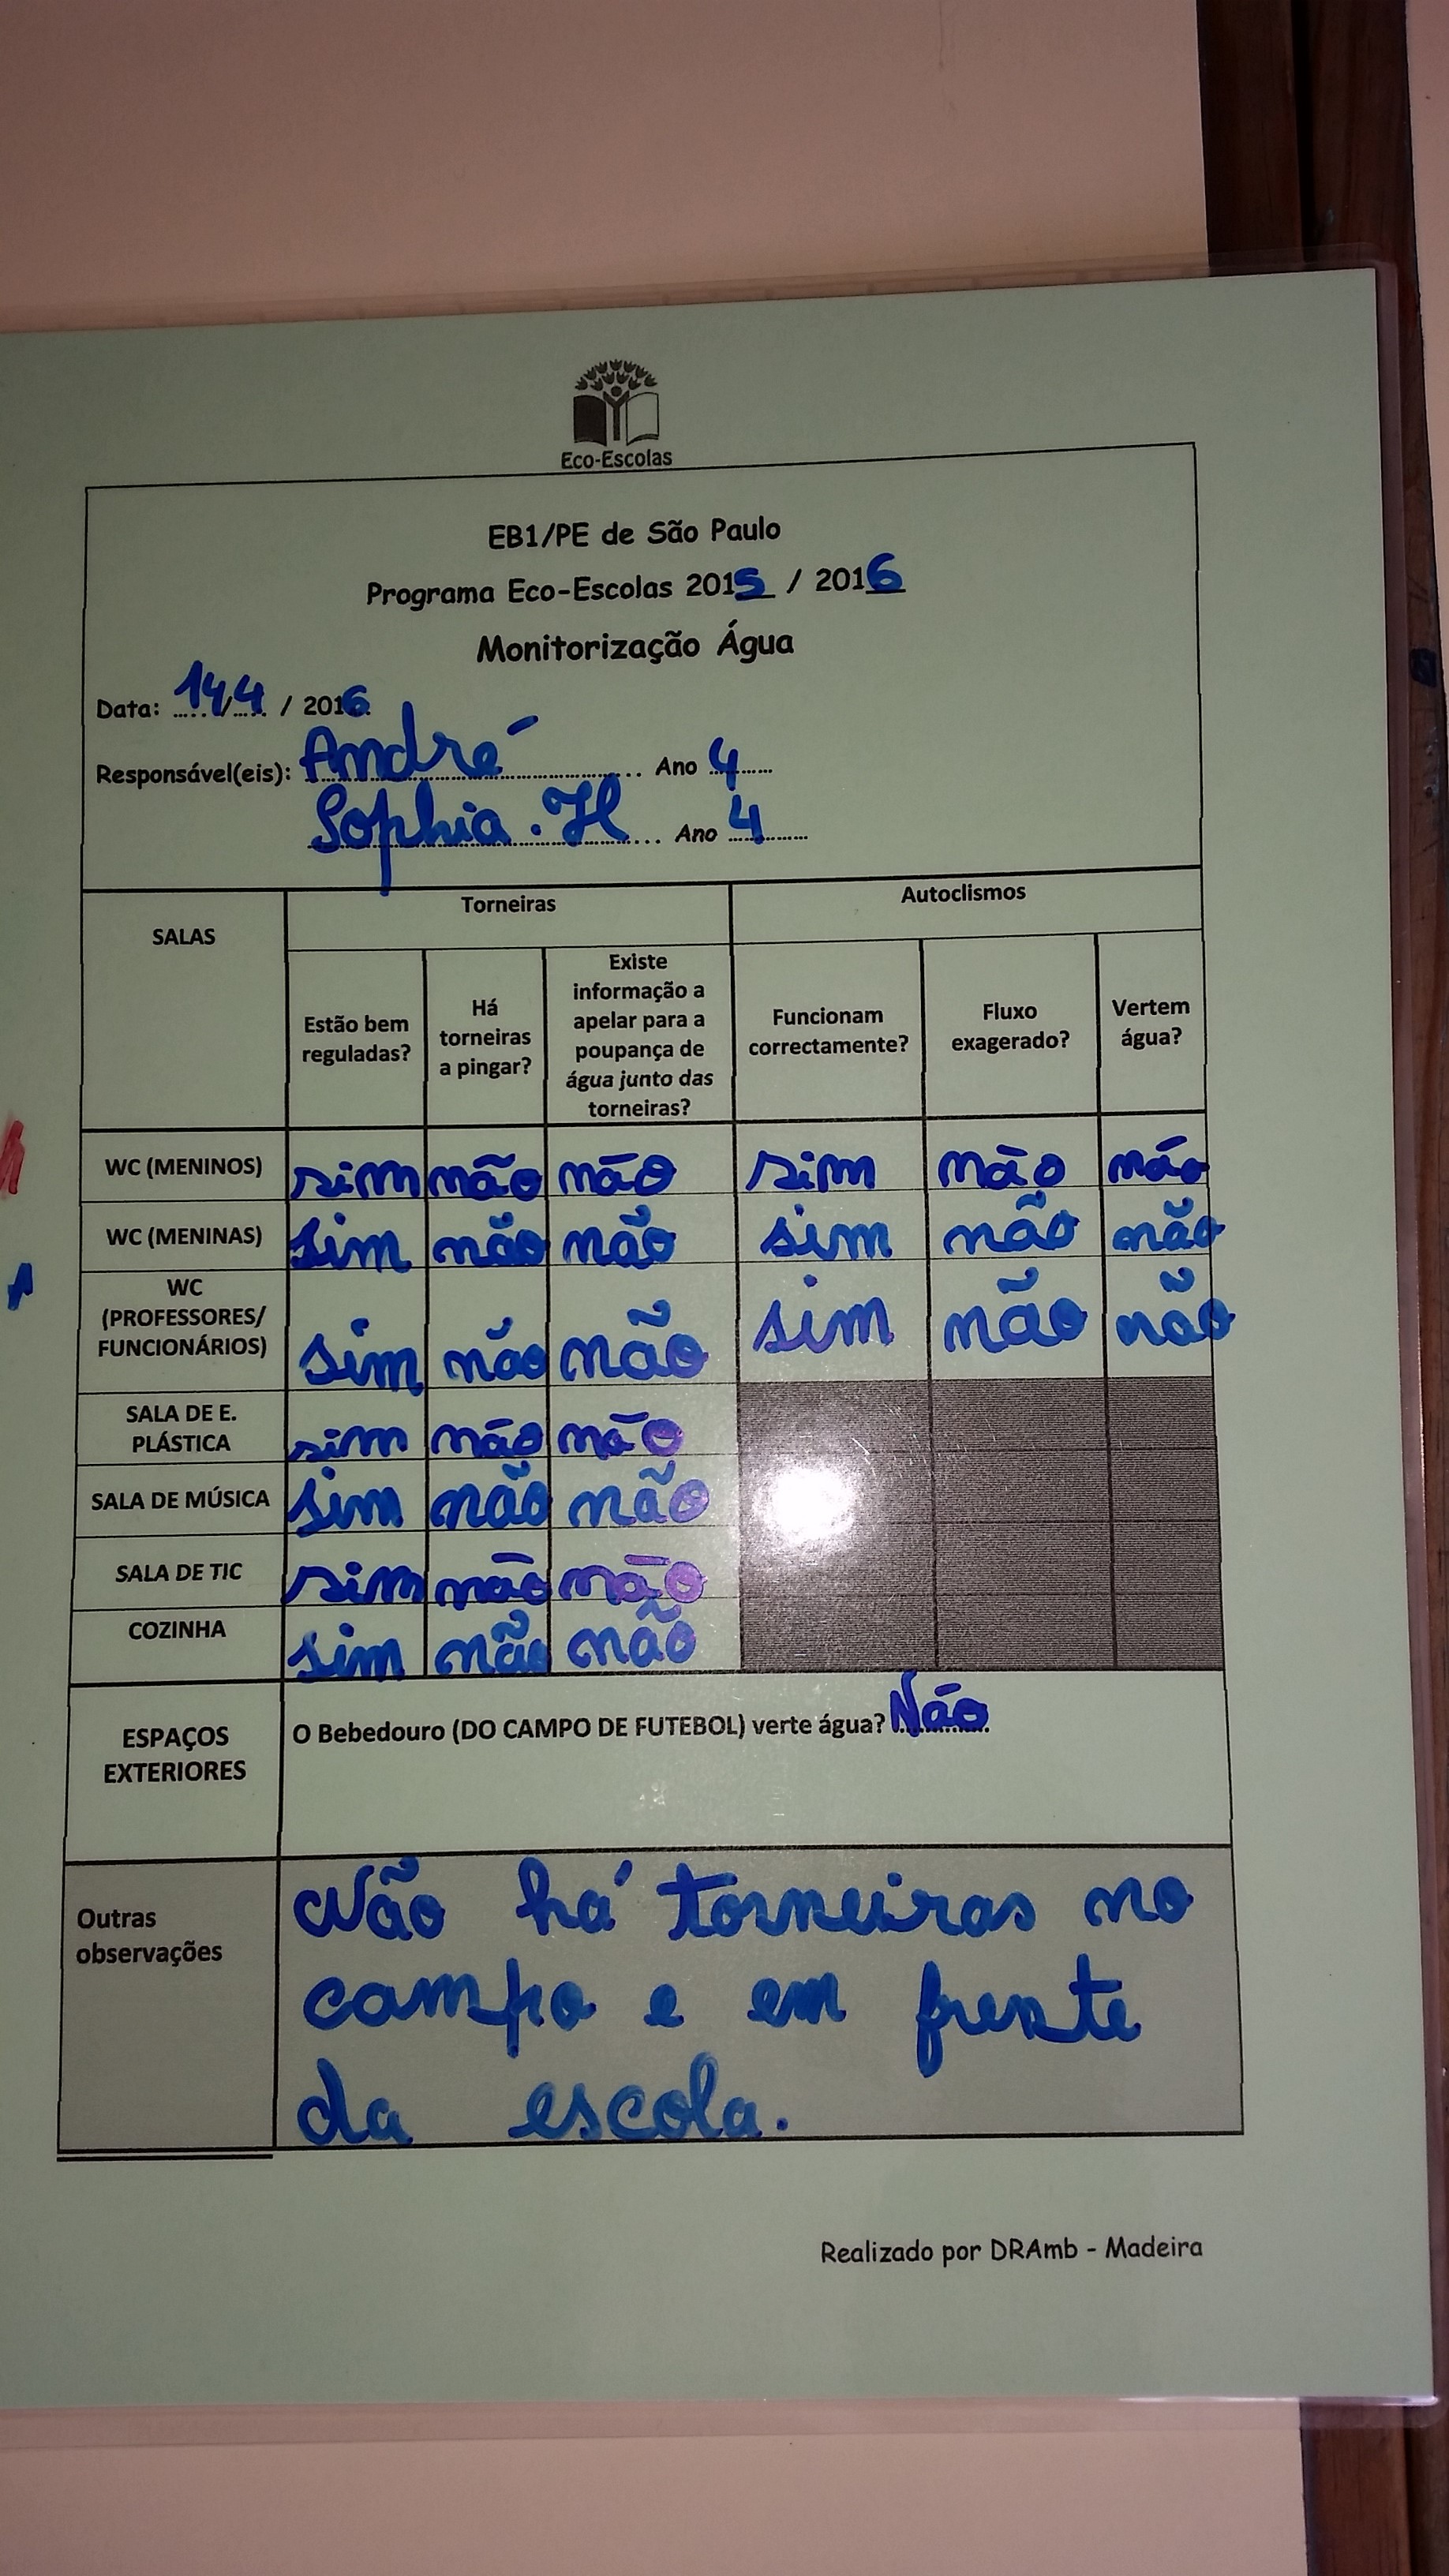 Eco-Escolas
EB1/PE de São Paulo
Programa Eco-Escolas 2015 / 2016
Monitorização Água
Data: 14/4 / 2016
Responsável(eis): André Ano 4
Sophia.H Ano 4
SALAS
Torneiras
Autoclismos
Estão bem
reguladas?
Há
torneiras
a pingar?
Existe
informação a
apelar para a
poupança de
água junto das
torneiras?
Funcionam
correctamente?
Fluxo
exagerado?
Vertem
água?
WC (MENINOS) sim não não sim não não
WC (MENINAS) sim não não sim não não
WC
(PROFESSORES/
FUNCIONÁRIOS) sim não não sim não não
SALA DE E.
PLÁSTICA sim não não
SALA DE MÚSICA sim não não
SALA DE TIC sim não não
COZINHA sim não não
ESPAÇOS
EXTERIORES
O Bebedouro (DO CAMPO DE FUTEBOL) verte água? Não
Outras
observações
Não há torneiras no
campo e em frente
da escola.
Realizado por DRAmb - Madeira